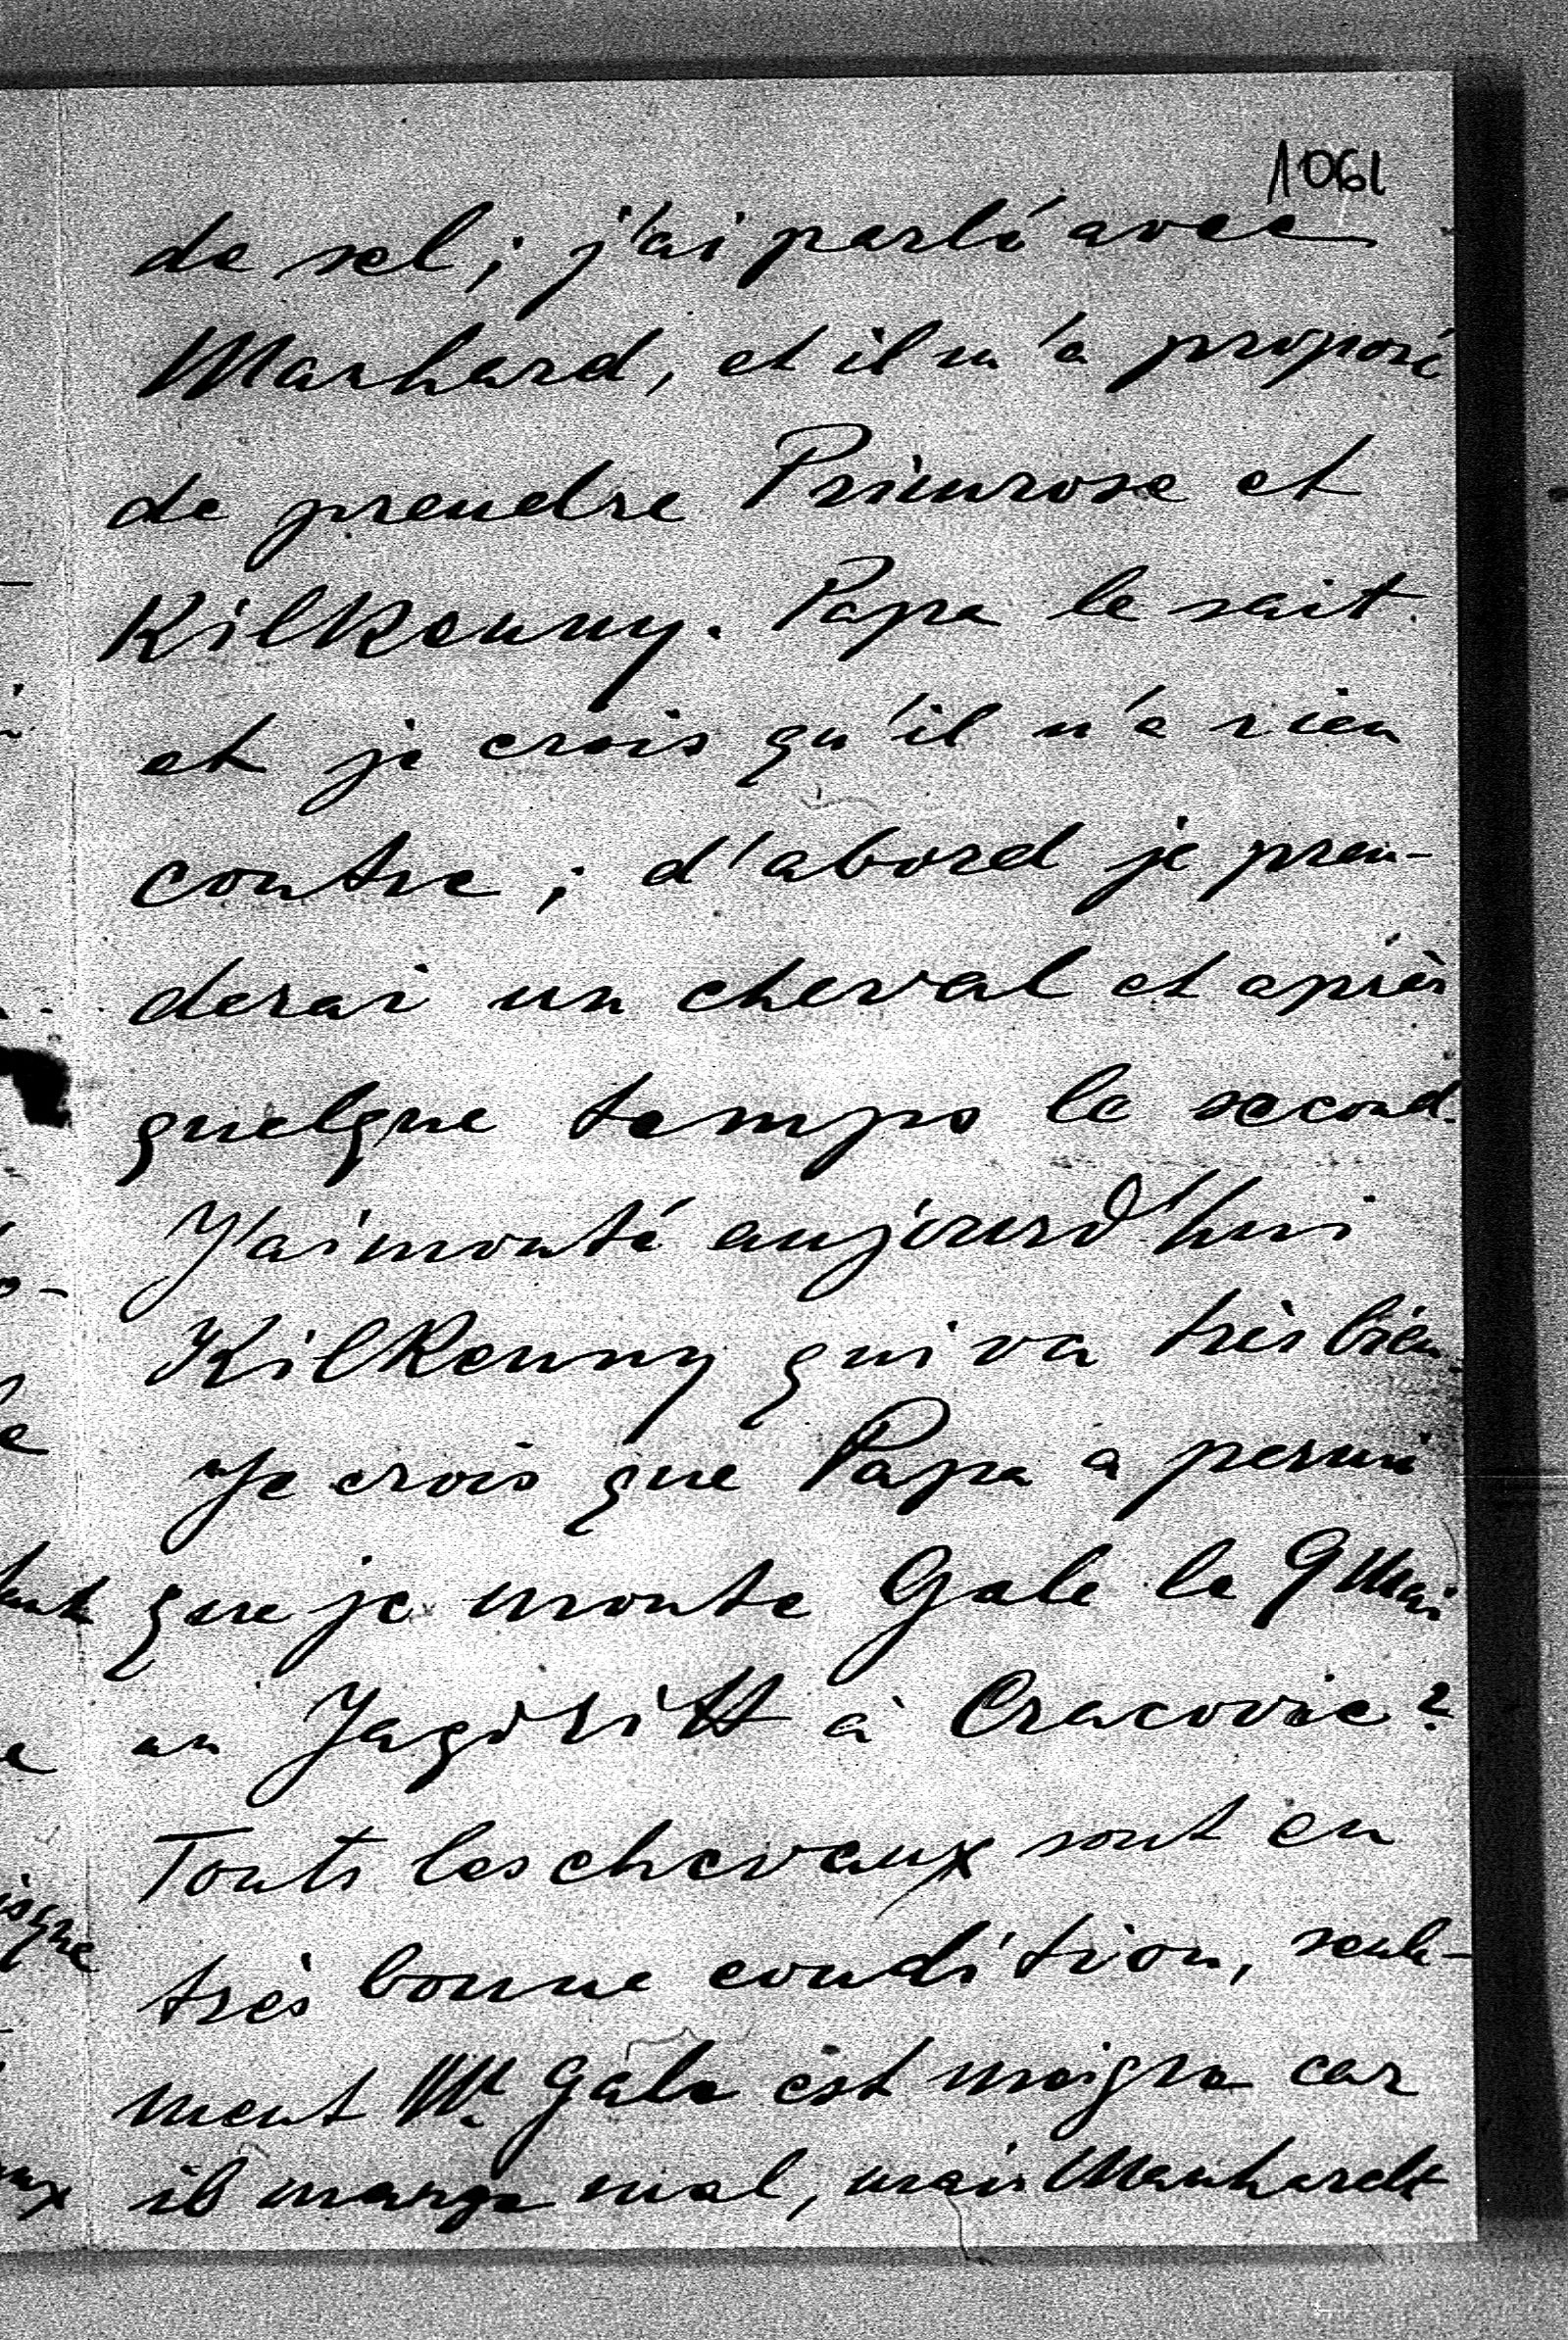 1061
de sel; j'ai parlé avec
Marhard, et il m'a proposé
de prendre Primrose et
Kilkenny. Papa le sait
et je crois qu'il n'a rien
contre; d'abord je pren-
derai un cheval et après
quelque temps le second.
J'ai monté aujourd'hui
Kilkenny qui va très bien.
Je crois que Papa a permi
que je monte Gale le 9 Mai
au Jagdritt à Cracovie?
Touts les chevaux sont en
très bonne condition, seule-
ment Mr. Gale est maigre car
il mange mal, mais Manhardt